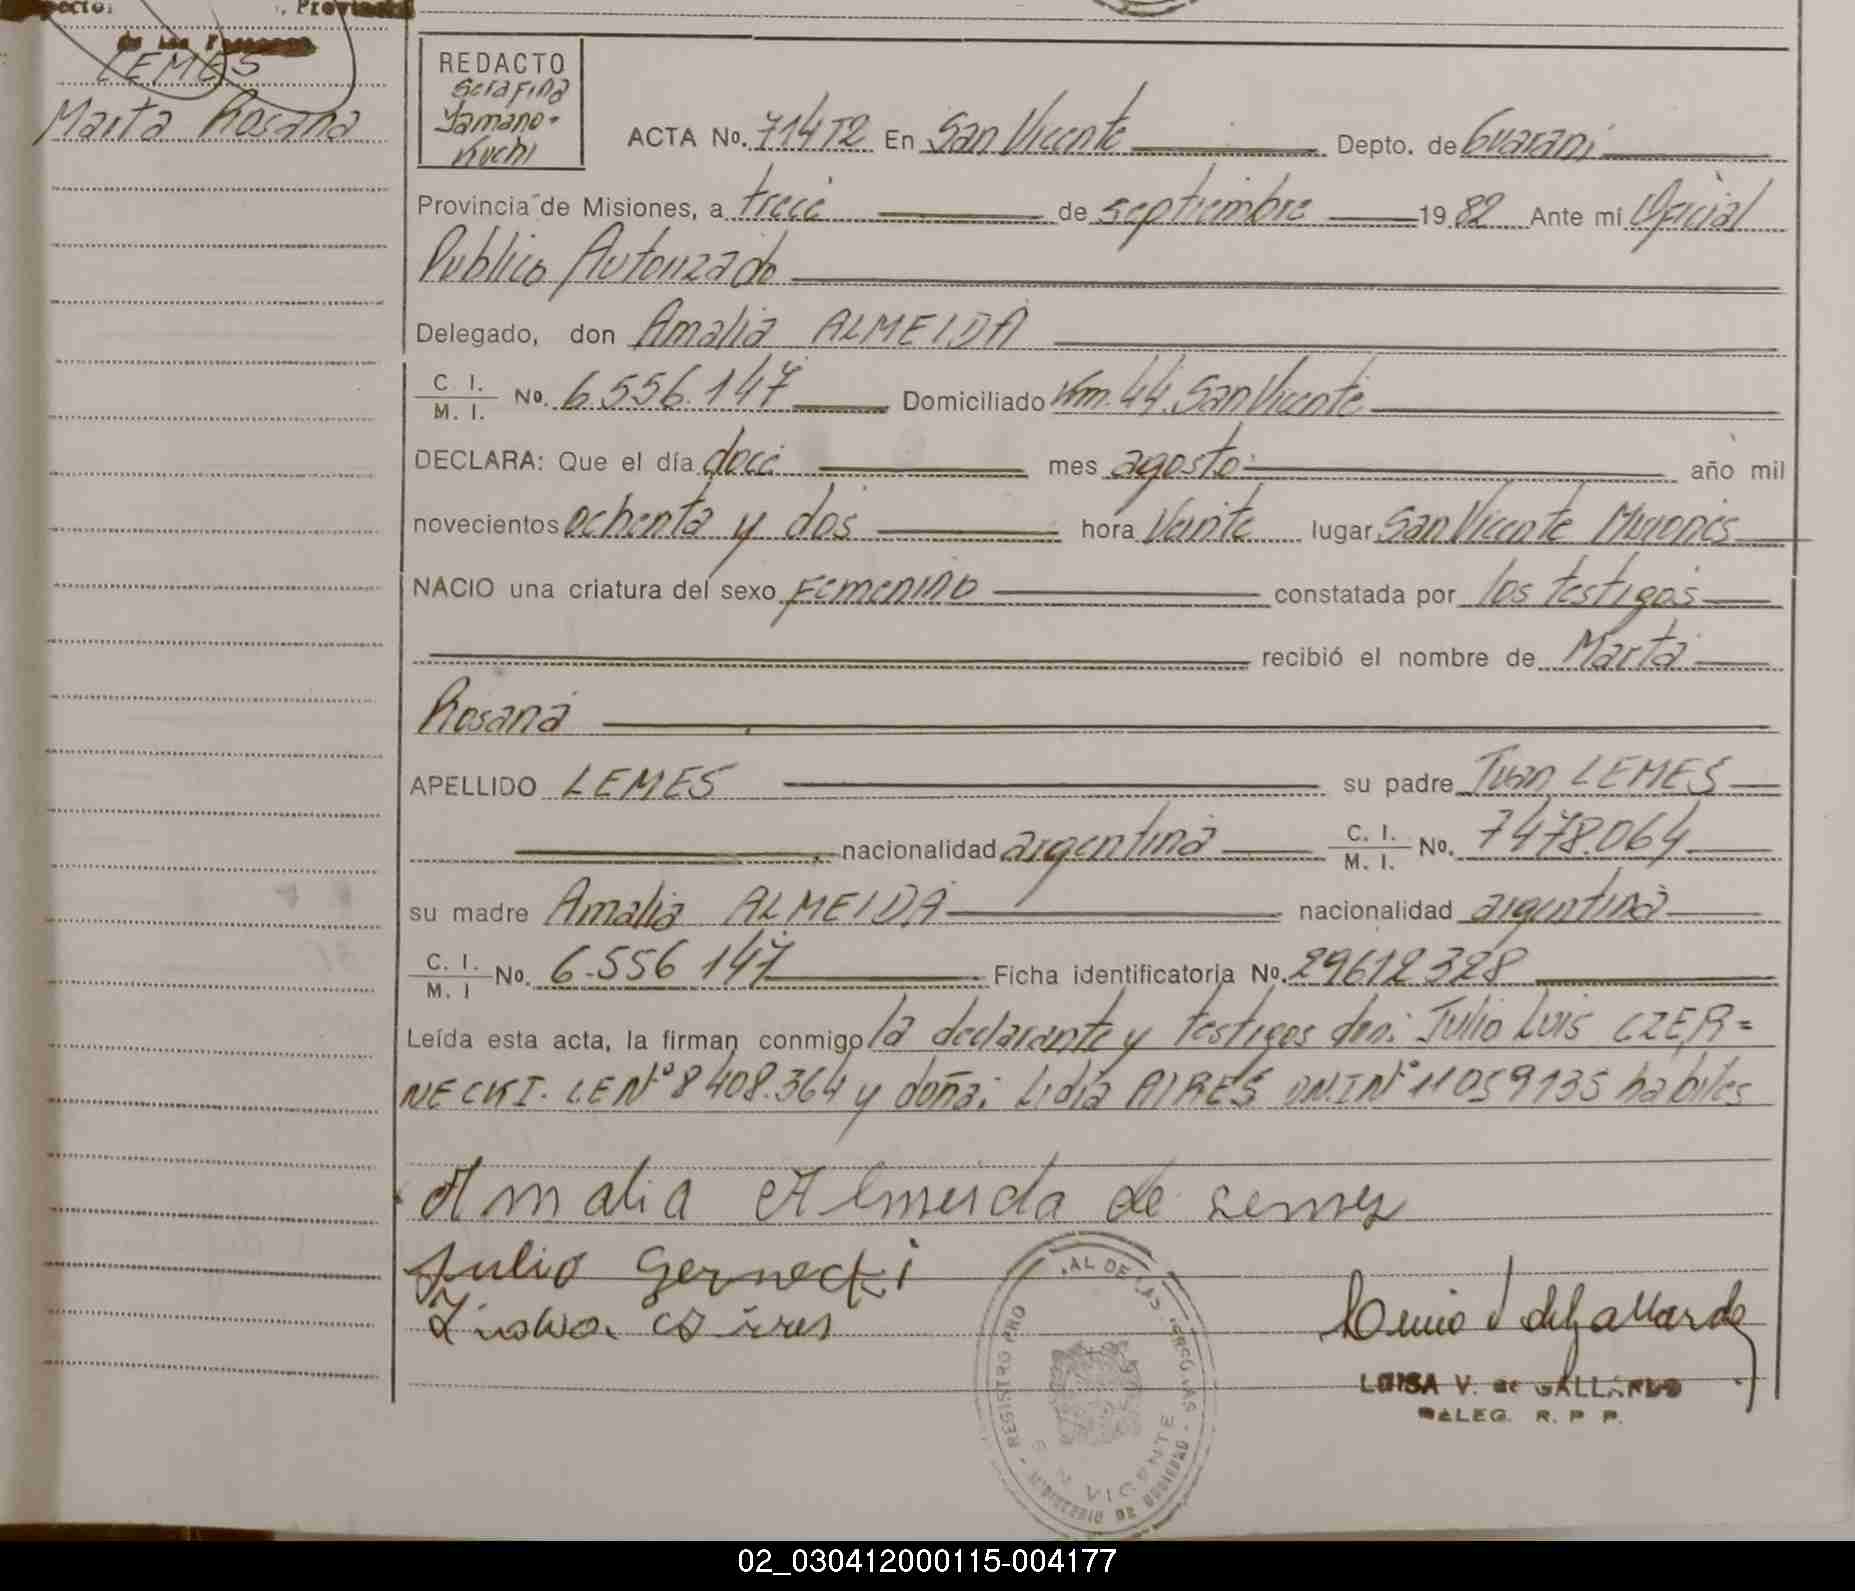 , Provincia
de las Personas
LEMES
Marta Rosana
REDACTO
Serafina
Yamano-
Kuchi
ACTA No. 714 T2 En San Vicente Depto. de Guaraní
Provincia de Misiones, a trece de septiembre 1982 Ante mi Oficial
Publico Autorizado
Delegado, don Amalia ALMEIDA
C. I.
M. I. No. 6.556.147 Domiciliado Km. 44. San Vicente
DECLARA: Que el día doce mes agosto año mil
novecientos ochenta y dos hora veinte lugar San Vicente Misiones
NACIO una criatura del sexo Femenino constatada por los testigos
recibió el nombre de Marta
Rosana
APELLIDO LEMES su padre Juan LEMES
nacionalidad argentina C. I.
M. I. No. 7478.064
su madre Amalia ALMEIDA nacionalidad argentina
C. I.
M. I No. 6.556 147 Ficha identificatoria No. 29612328
Leída esta acta, la firman conmigo la declarante y testigos don: Julio Luis CZER=
NECKI. LE Nº 8408.364 y doña: Lidia AIRES DNI Nº 11059135 habiles
Amalia Almeida de Lemes
Julio
LUISA V. de GALLARDO
DELEG. R. P. P.
VICENTE
02_030412000115-004177